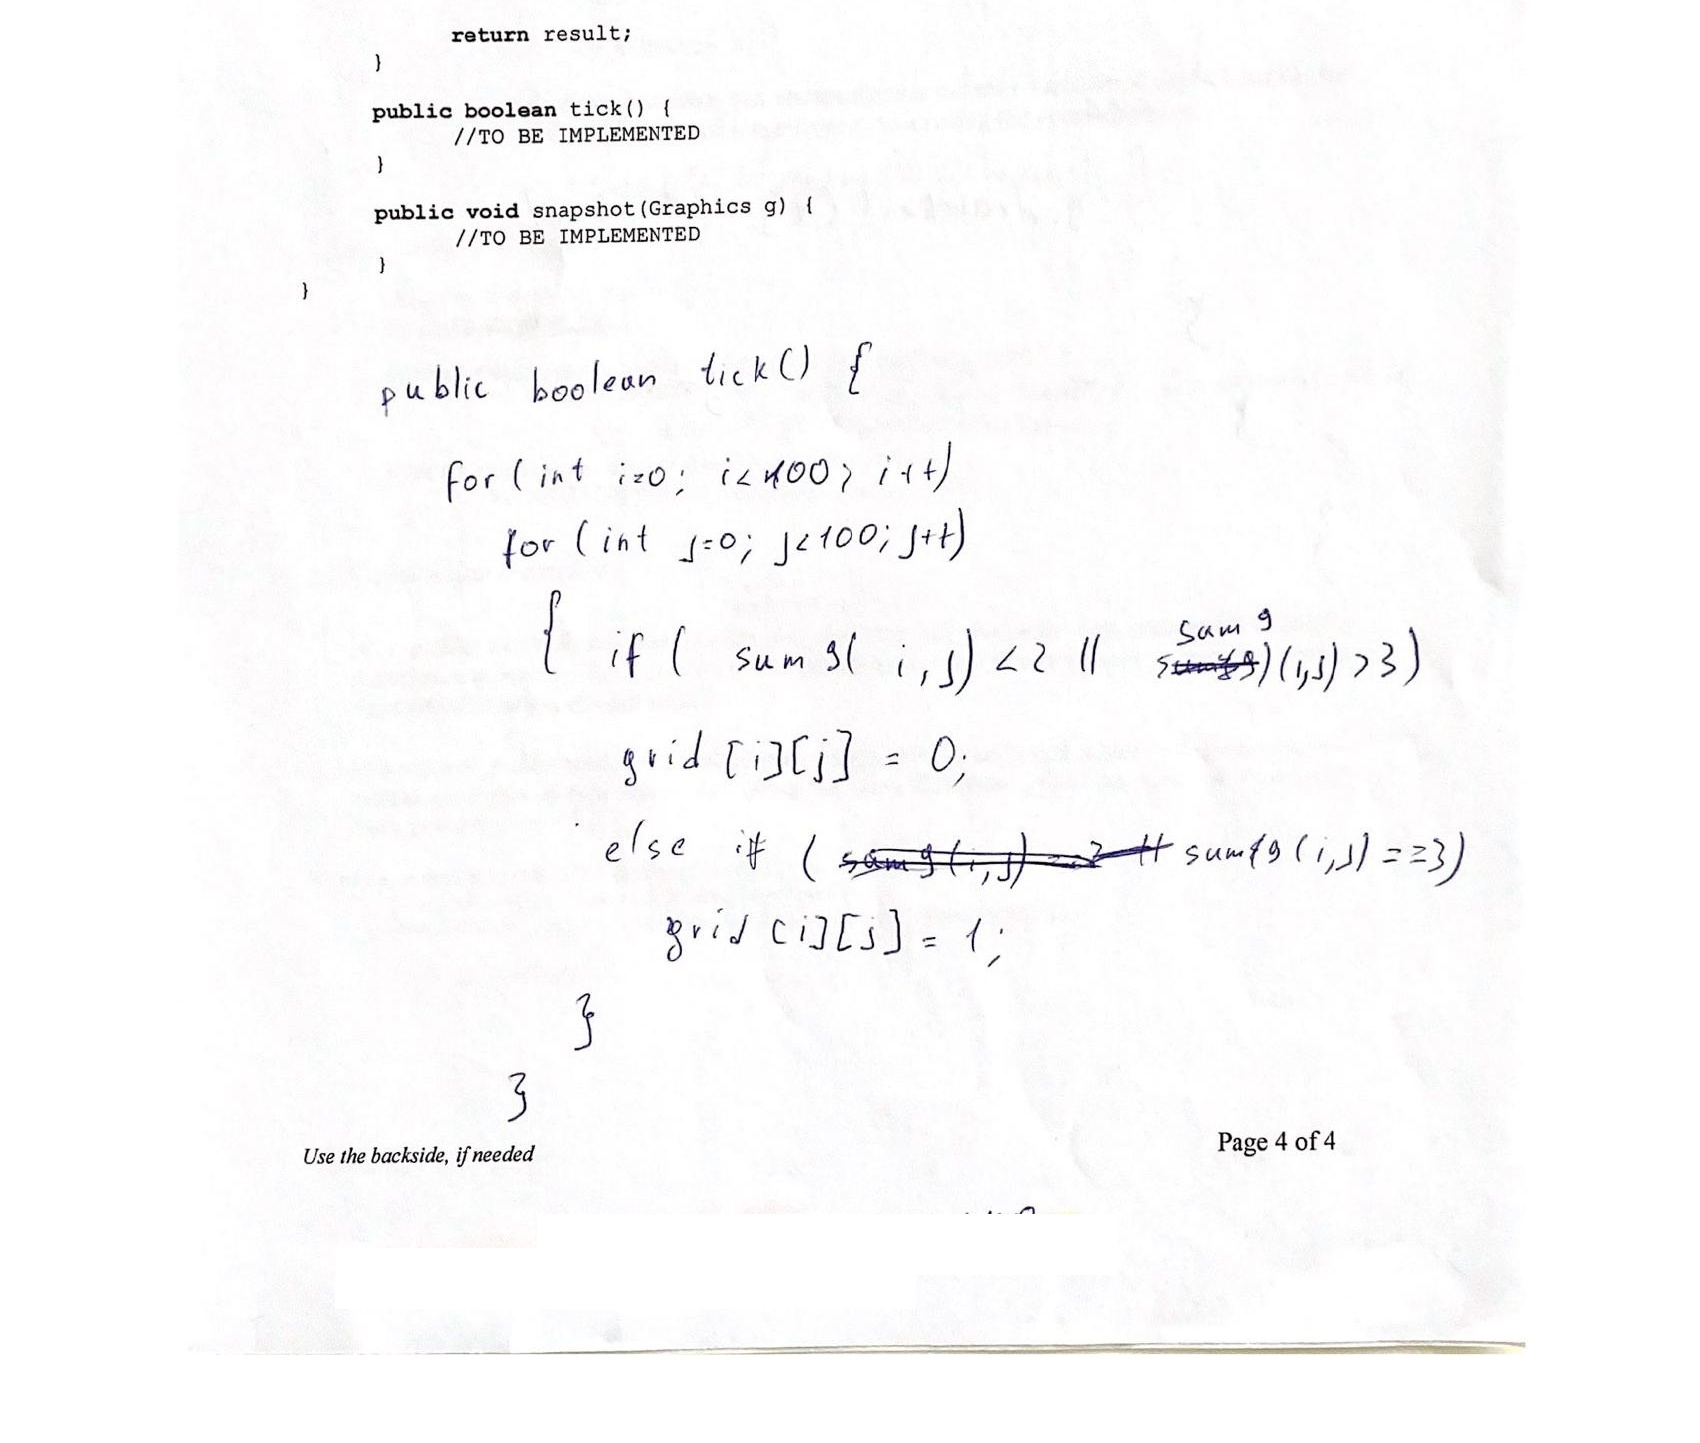 return result;
}
public boolean tick() {
//TO BE IMPLEMENTED
}
public void snapshot(Graphics g) {
//TO BE IMPLEMENTED
}
}
public boolean tick() {
for (int i=0; i<100; i++)
for (int j=0; j<100; j++)
{ if ( sum9( i,j) <2 || sum9 (i,j) >3)
grid [i][j] = 0;
else if ( sum9 (i,j) ==3)
grid [i][j] = 1;
}
}
Use the backside, if needed
Page 4 of 4